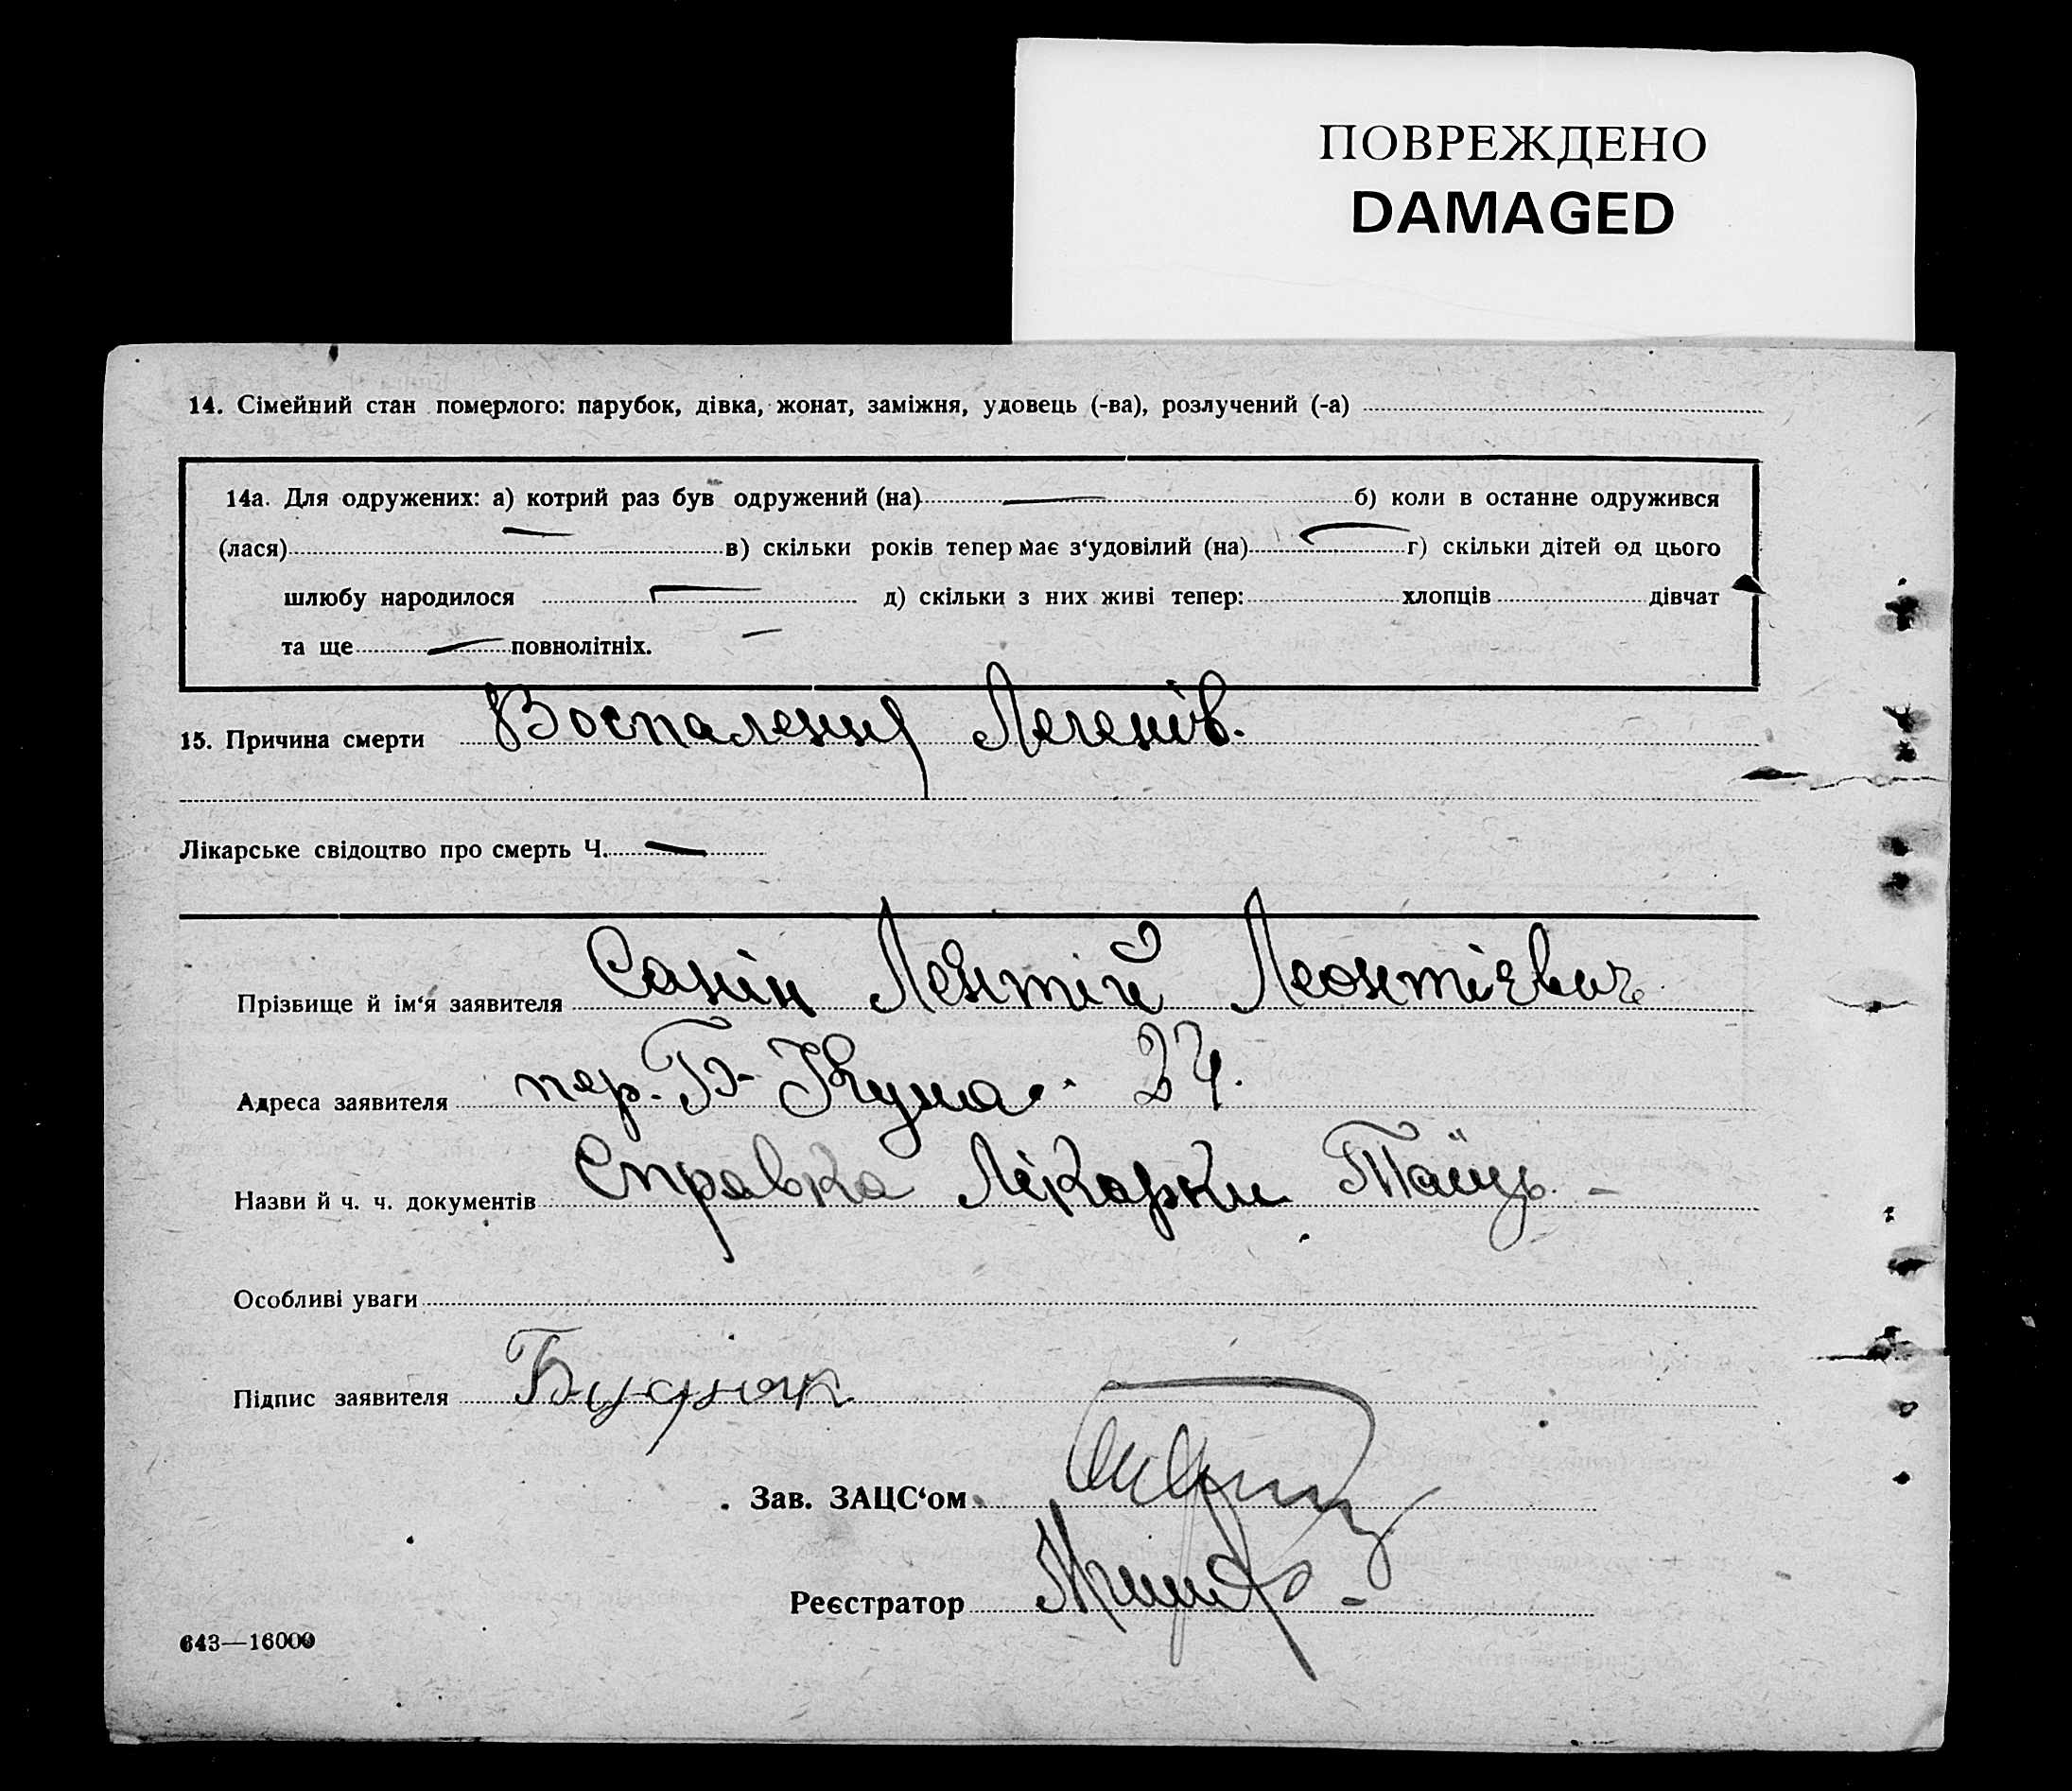 ПОВРЕЖДЕНО
DAMAGED
14. Сімейний стан померлого: парубок, дівка, жонат, заміжня, удовець (-ва), розлучений (-а)
14а. Для одружених: а) котрий раз був одружений (на) — б) коли в останне одружився
(лася) — в) скільки років тепер має з‘удовілий (на) — г) скільки дітей од цього
шлюбу народилося — д) скільки з них живі тепер: хлопців дівчат
та ще — повнолітніх. —
15. Причина смерти Воспаления Легенів.
Лікарське свідоцтво про смерть Ч. —
Прізвище й ім‘я заявителя Санін Леонтій Леонтієвич
Адреса заявителя пер. Б- 24.
Назви й ч. ч. документів Справка Лікарки Таиць. –
Особливі уваги
Підпис заявителя
Зав. ЗАЦС‘ом
Реєстратор
643—16000